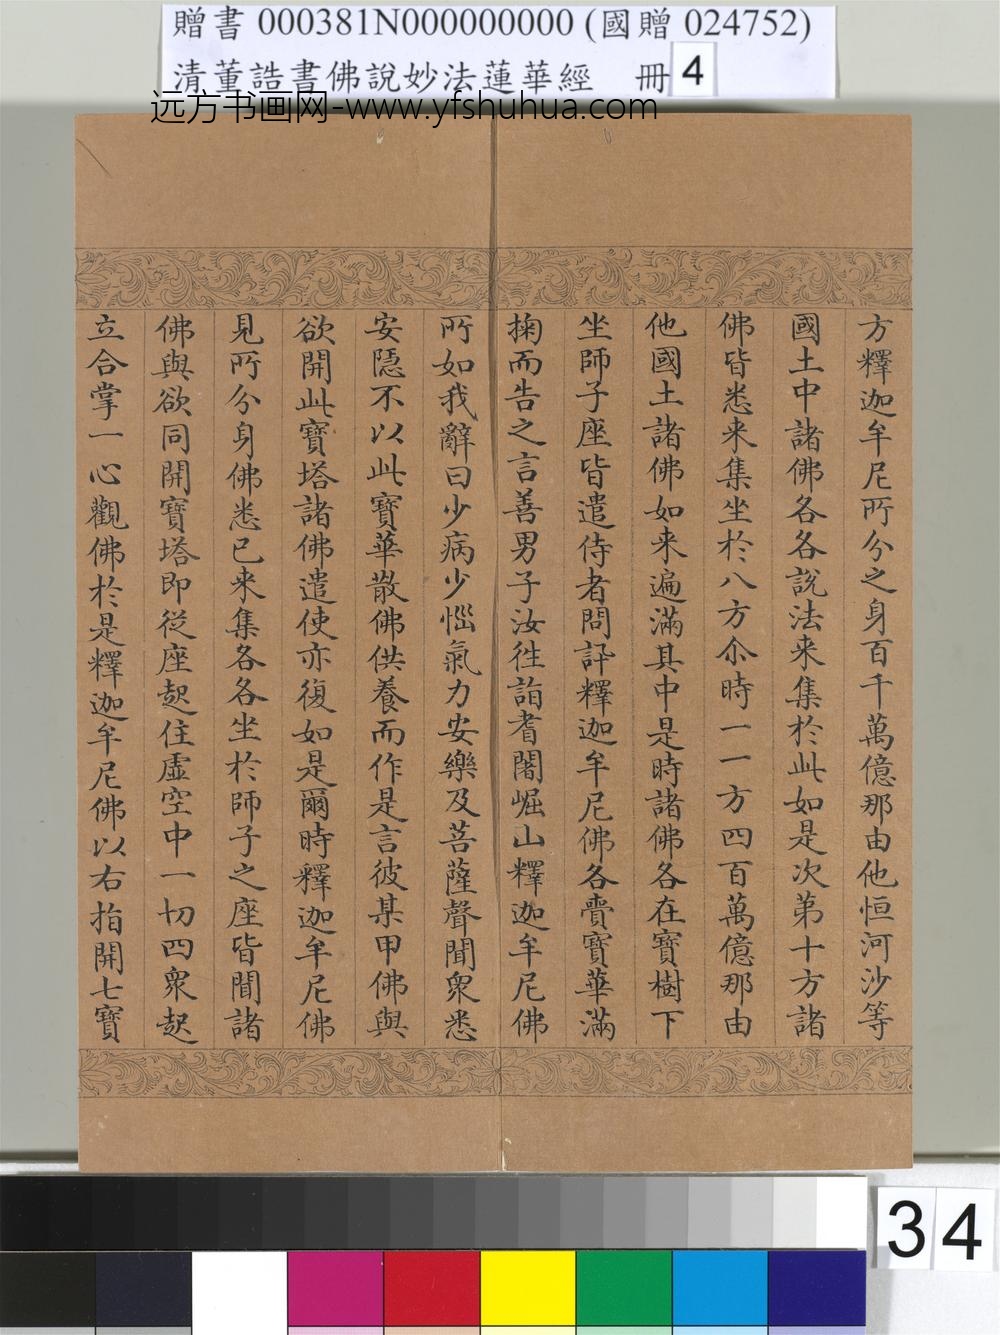 贈書 000381N000000000 (國贈 024752)
清董誥書佛說妙法蓮華經 冊 4
远方书画网-www.yfshuhua.com
方釋迦牟尼所分之身百千萬億那由他恒河沙等
國土中諸佛各各說法来集於此如是次第十方諸
佛皆悉来集坐於八方尒時一一方四百萬億那由
他國土諸佛如来遍滿其中是時諸佛各在寶樹下
坐師子座皆遣侍者問訊釋迦牟尼佛各賷寶華滿
掬而告之言善男子汝徃詣耆闍崛山釋迦牟尼佛
所如我辭曰少病少惱氣力安樂及菩薩聲聞衆悉
安隱不以此寶華散佛供養而作是言彼某甲佛與
欲開此寶塔諸佛遣使亦復如是爾時釋迦牟尼佛
見所分身佛悉已来集各各坐於師子之座皆聞諸
佛與欲同開寶塔即從座起住虛空中一切四衆起
立合掌一心觀佛於是釋迦牟尼佛以右指開七寶
34